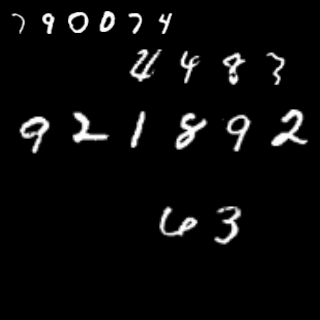 790074
4483
921892
63